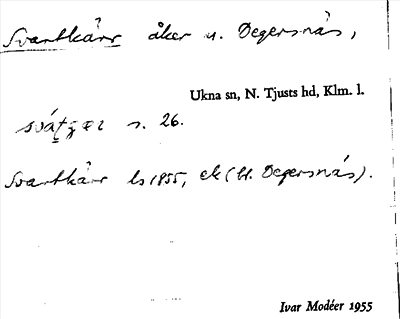 Svartkärr åker u. Degersnäs,
Ukna sn, N. Tjusts hd, Klm. l.
s. 26.
Svartkärr ls 1855, ek (bl. Degersnäs).
Ivar Modéer 1955